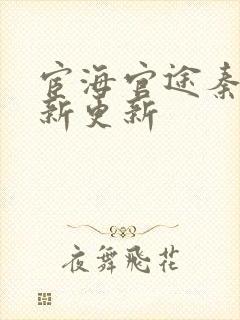 宦海官途秦
新更新
夜舞飛花